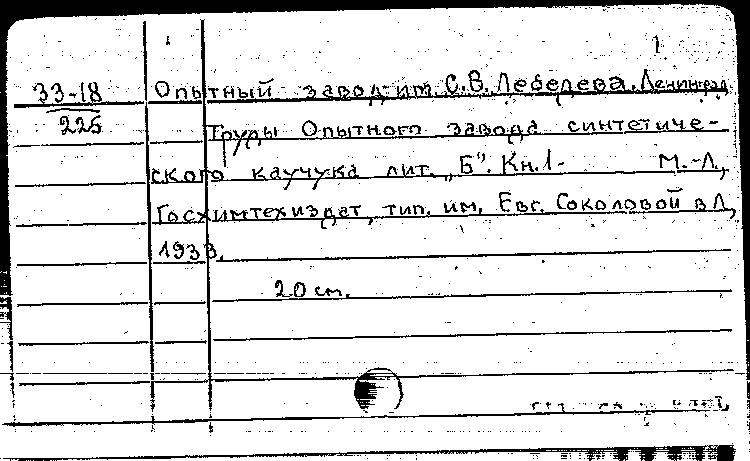 1
33-18 Опытный завод им. С.В. Лебедева. Ленинград
225 Труды Опытного завода синтетиче-
ского каучука лит. „Б". Кн.1- М.-Л.,
Госхимтехиздат, тип. им. Евг. Соколовой в Л.,
1933.
20 см.